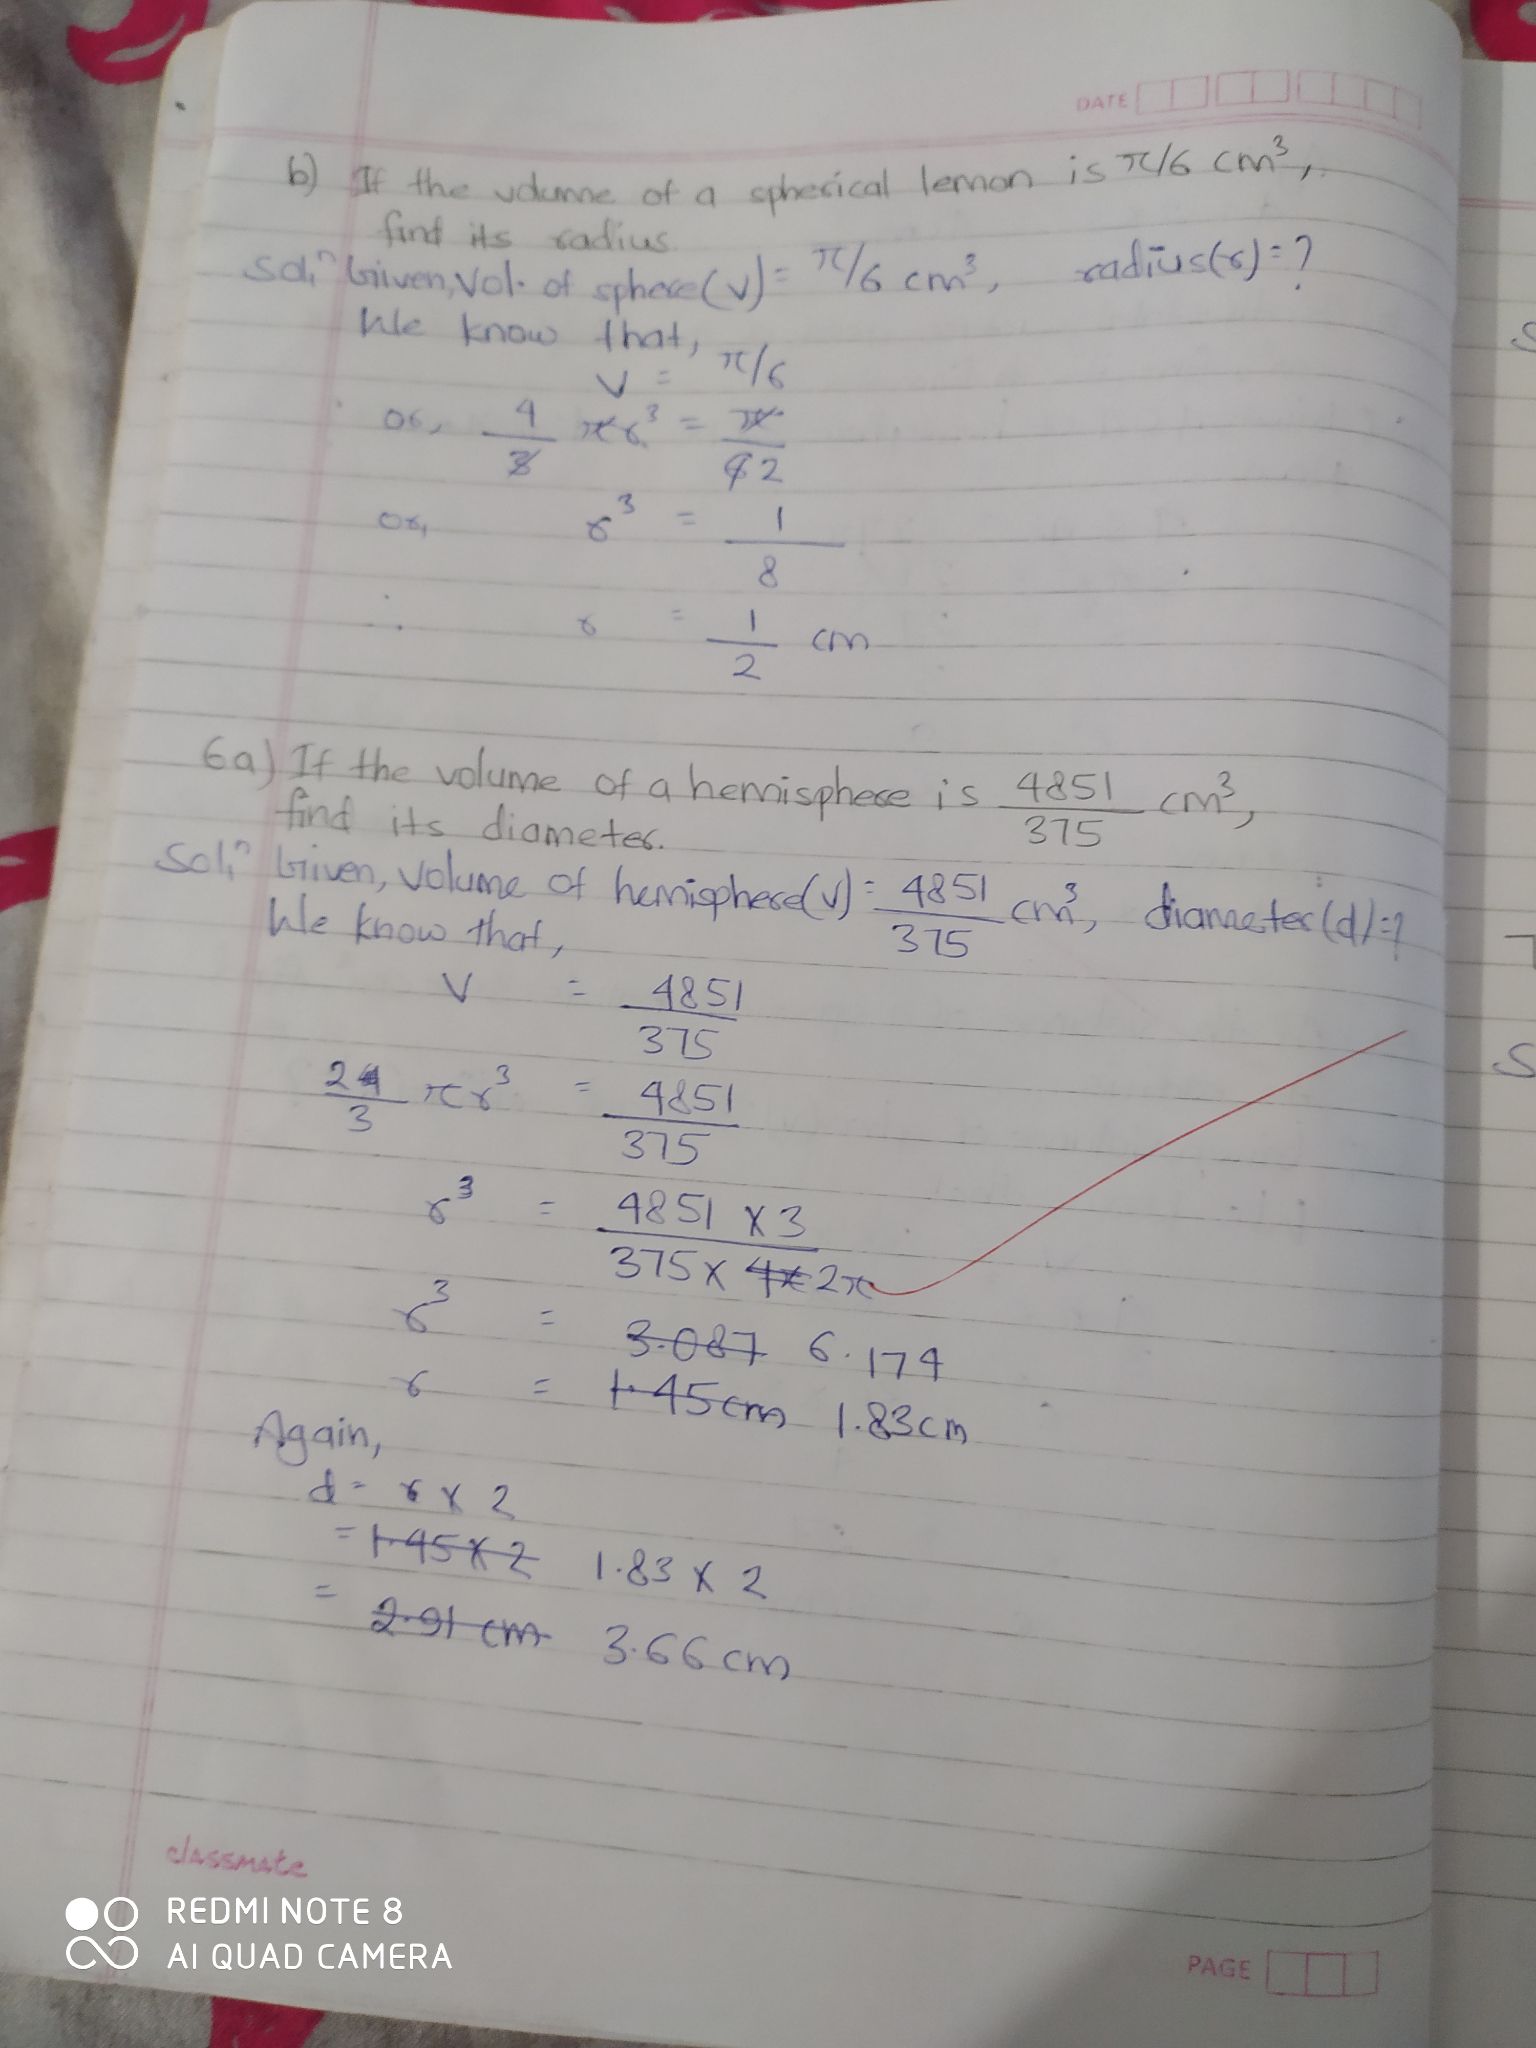 DATE
b) If the volume of a spherical lemon is π/6 cm³,
find its radius.
Solⁿ Given, Vol. of sphere(v) = π/6 cm³, radius(r) = ?
We know that,
V = π/6
or, 4/3 πr³ = π/6 2
or, r³ = 1/8
∴ r = 1/2 cm
6a) If the volume of a hemisphere is 4851/375 cm³,
find its diameter.
Solⁿ Given, Volume of hemisphere(v) = 4851/375 cm³, diameter(d) = ?
We know that,
V = 4851/375
2/3 πr³ = 4851/375
r³ = 4851 x 3 / 375 x 4x 2π
r³ = 3.087 6.174
r = 1.45cm 1.83cm
Again,
d = r x 2
= 1.45 x 2 1.83 x 2
= 2.91 cm 3.66 cm
classmate
REDMI NOTE 8
AI QUAD CAMERA
PAGE